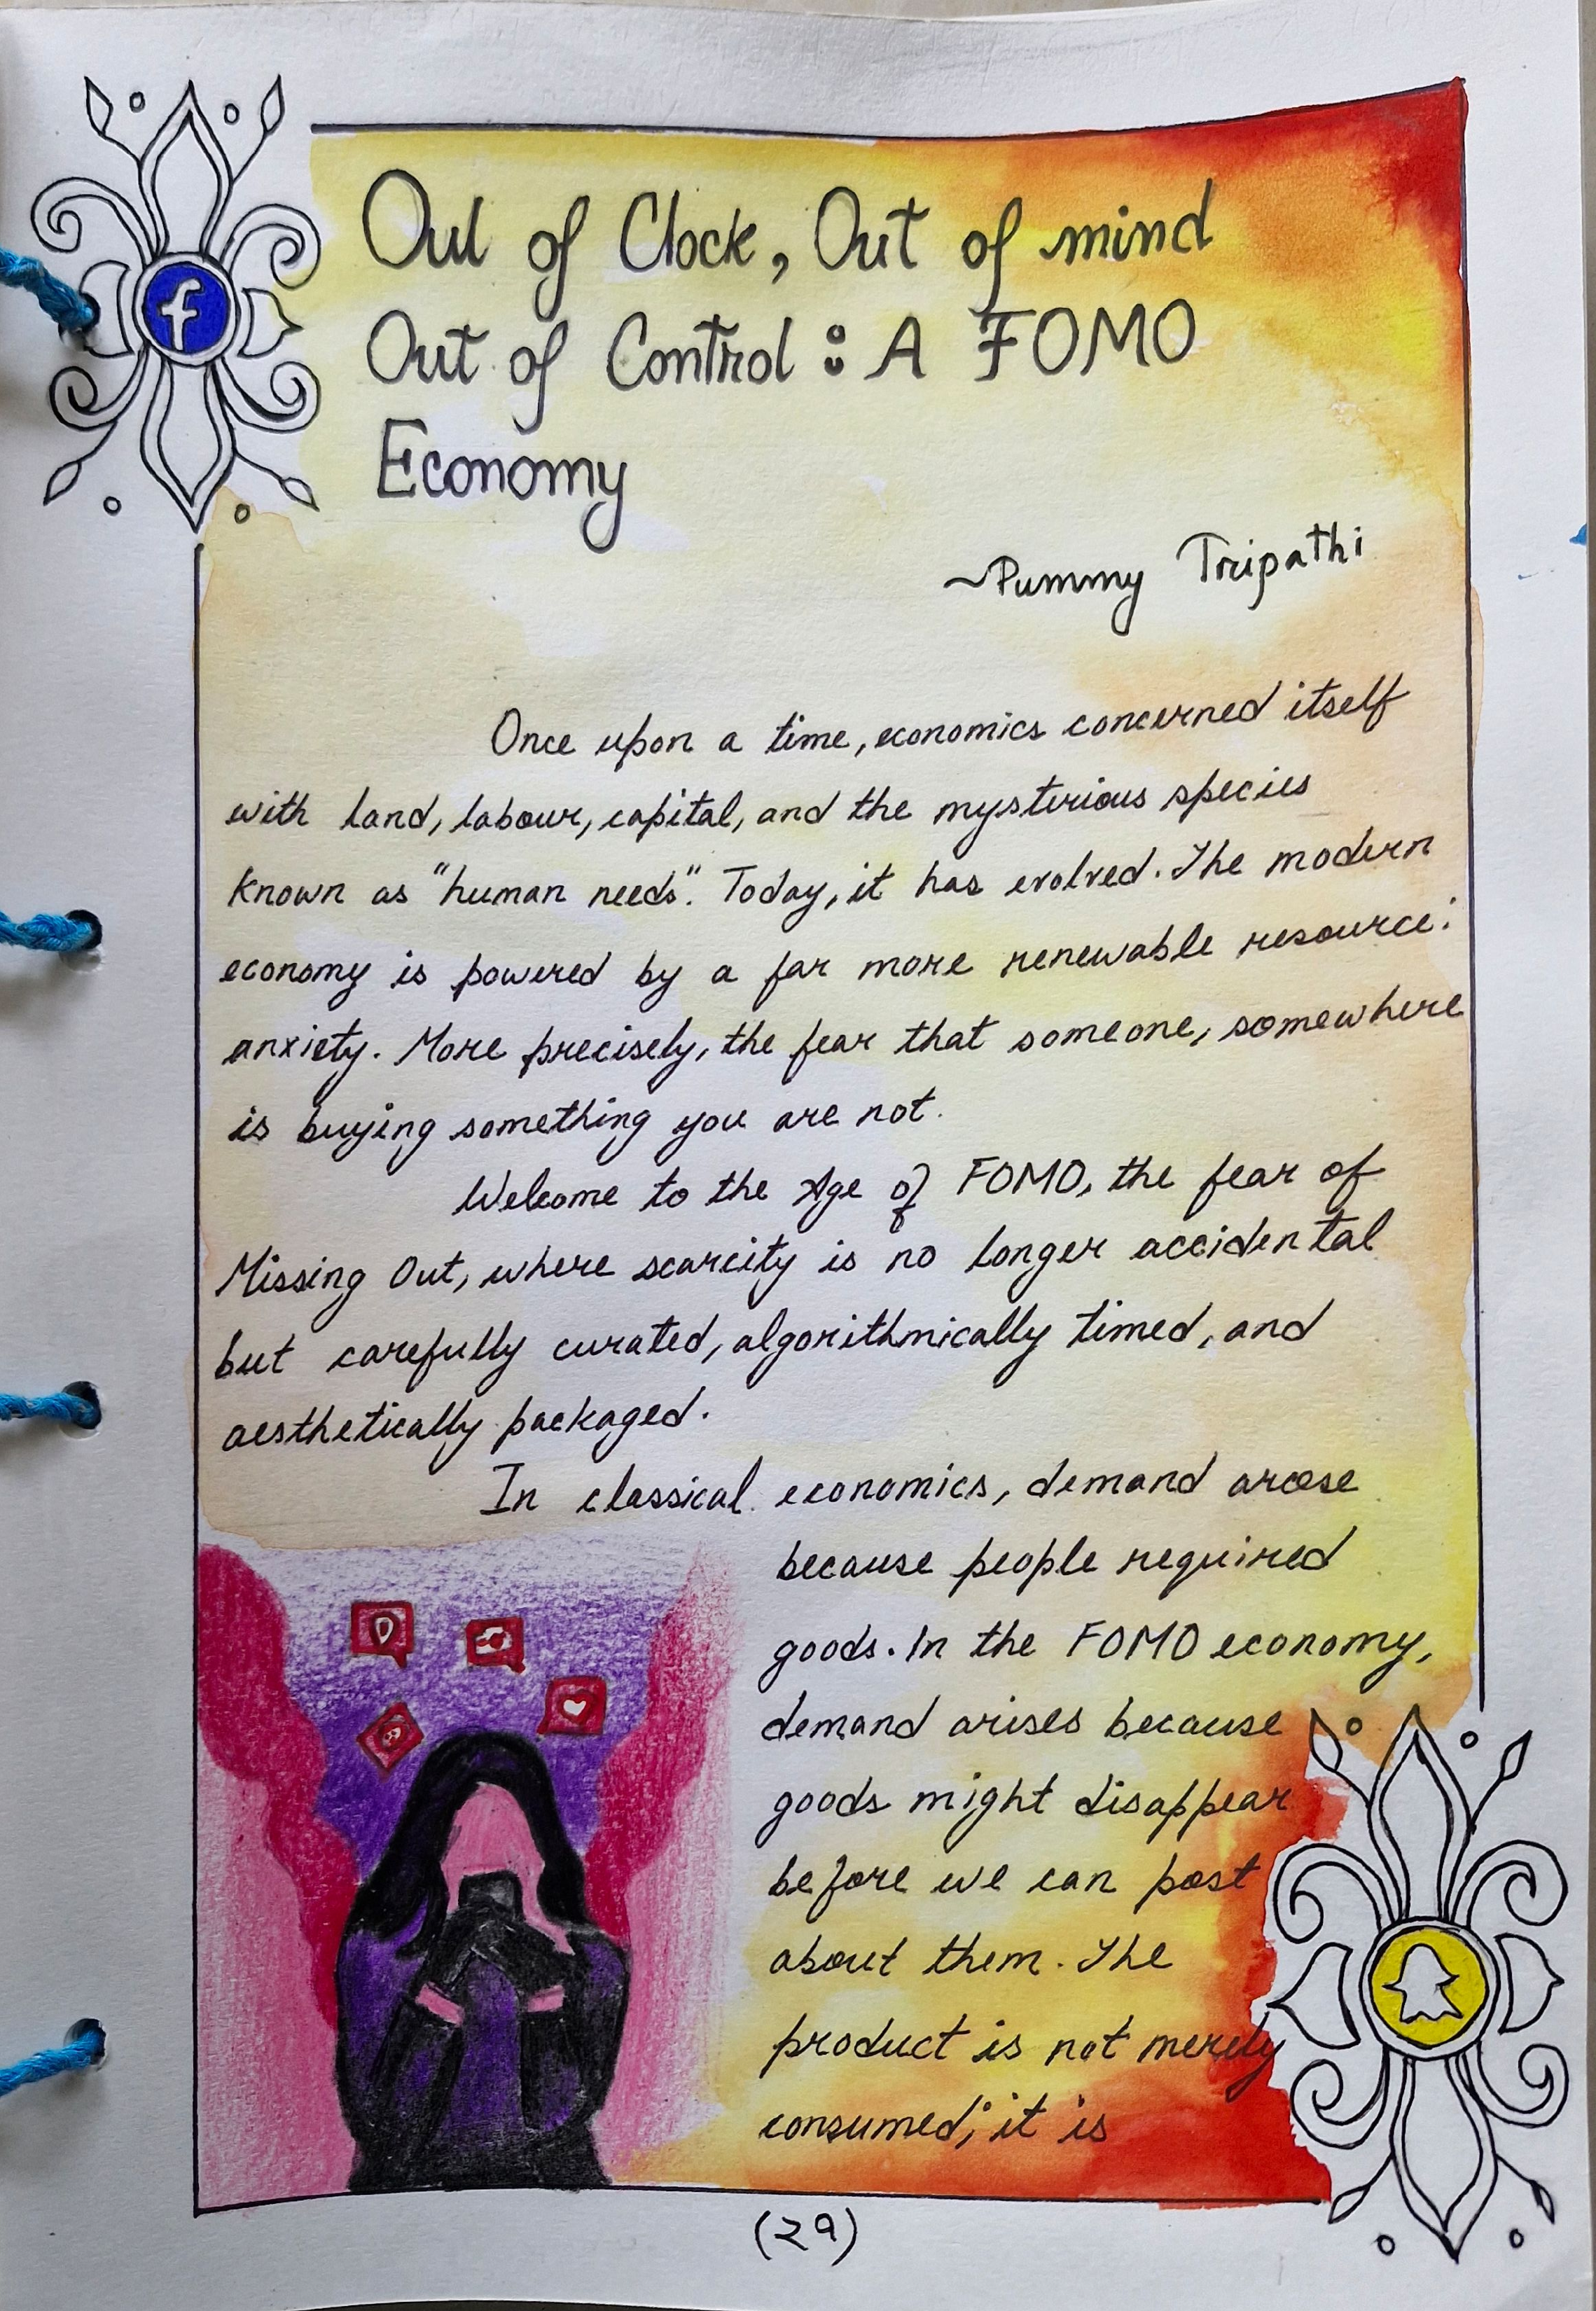 f
Out of Clock, Out of mind
Out of Control : A FOMO
Economy
~Pummy Tripathi
Once upon a time, economics concerned itself
with land, labour, capital, and the mysterious species
known as "human needs". Today, it has evolved. The modern
economy is powered by a far more renewable resource:
anxiety. More precisely, the fear that someone, somewhere
is buying something you are not.
Welcome to the Age of FOMO, the fear of
Missing Out, where scarcity is no longer accidental
but carefully curated, algorithmically timed, and
aesthetically packaged.
In classical economics, demand arose
because people required
goods. In the FOMO economy,
demand arises because
goods might disappear
before we can post
about them. The
product is not merely
consumed; it is
(२९)